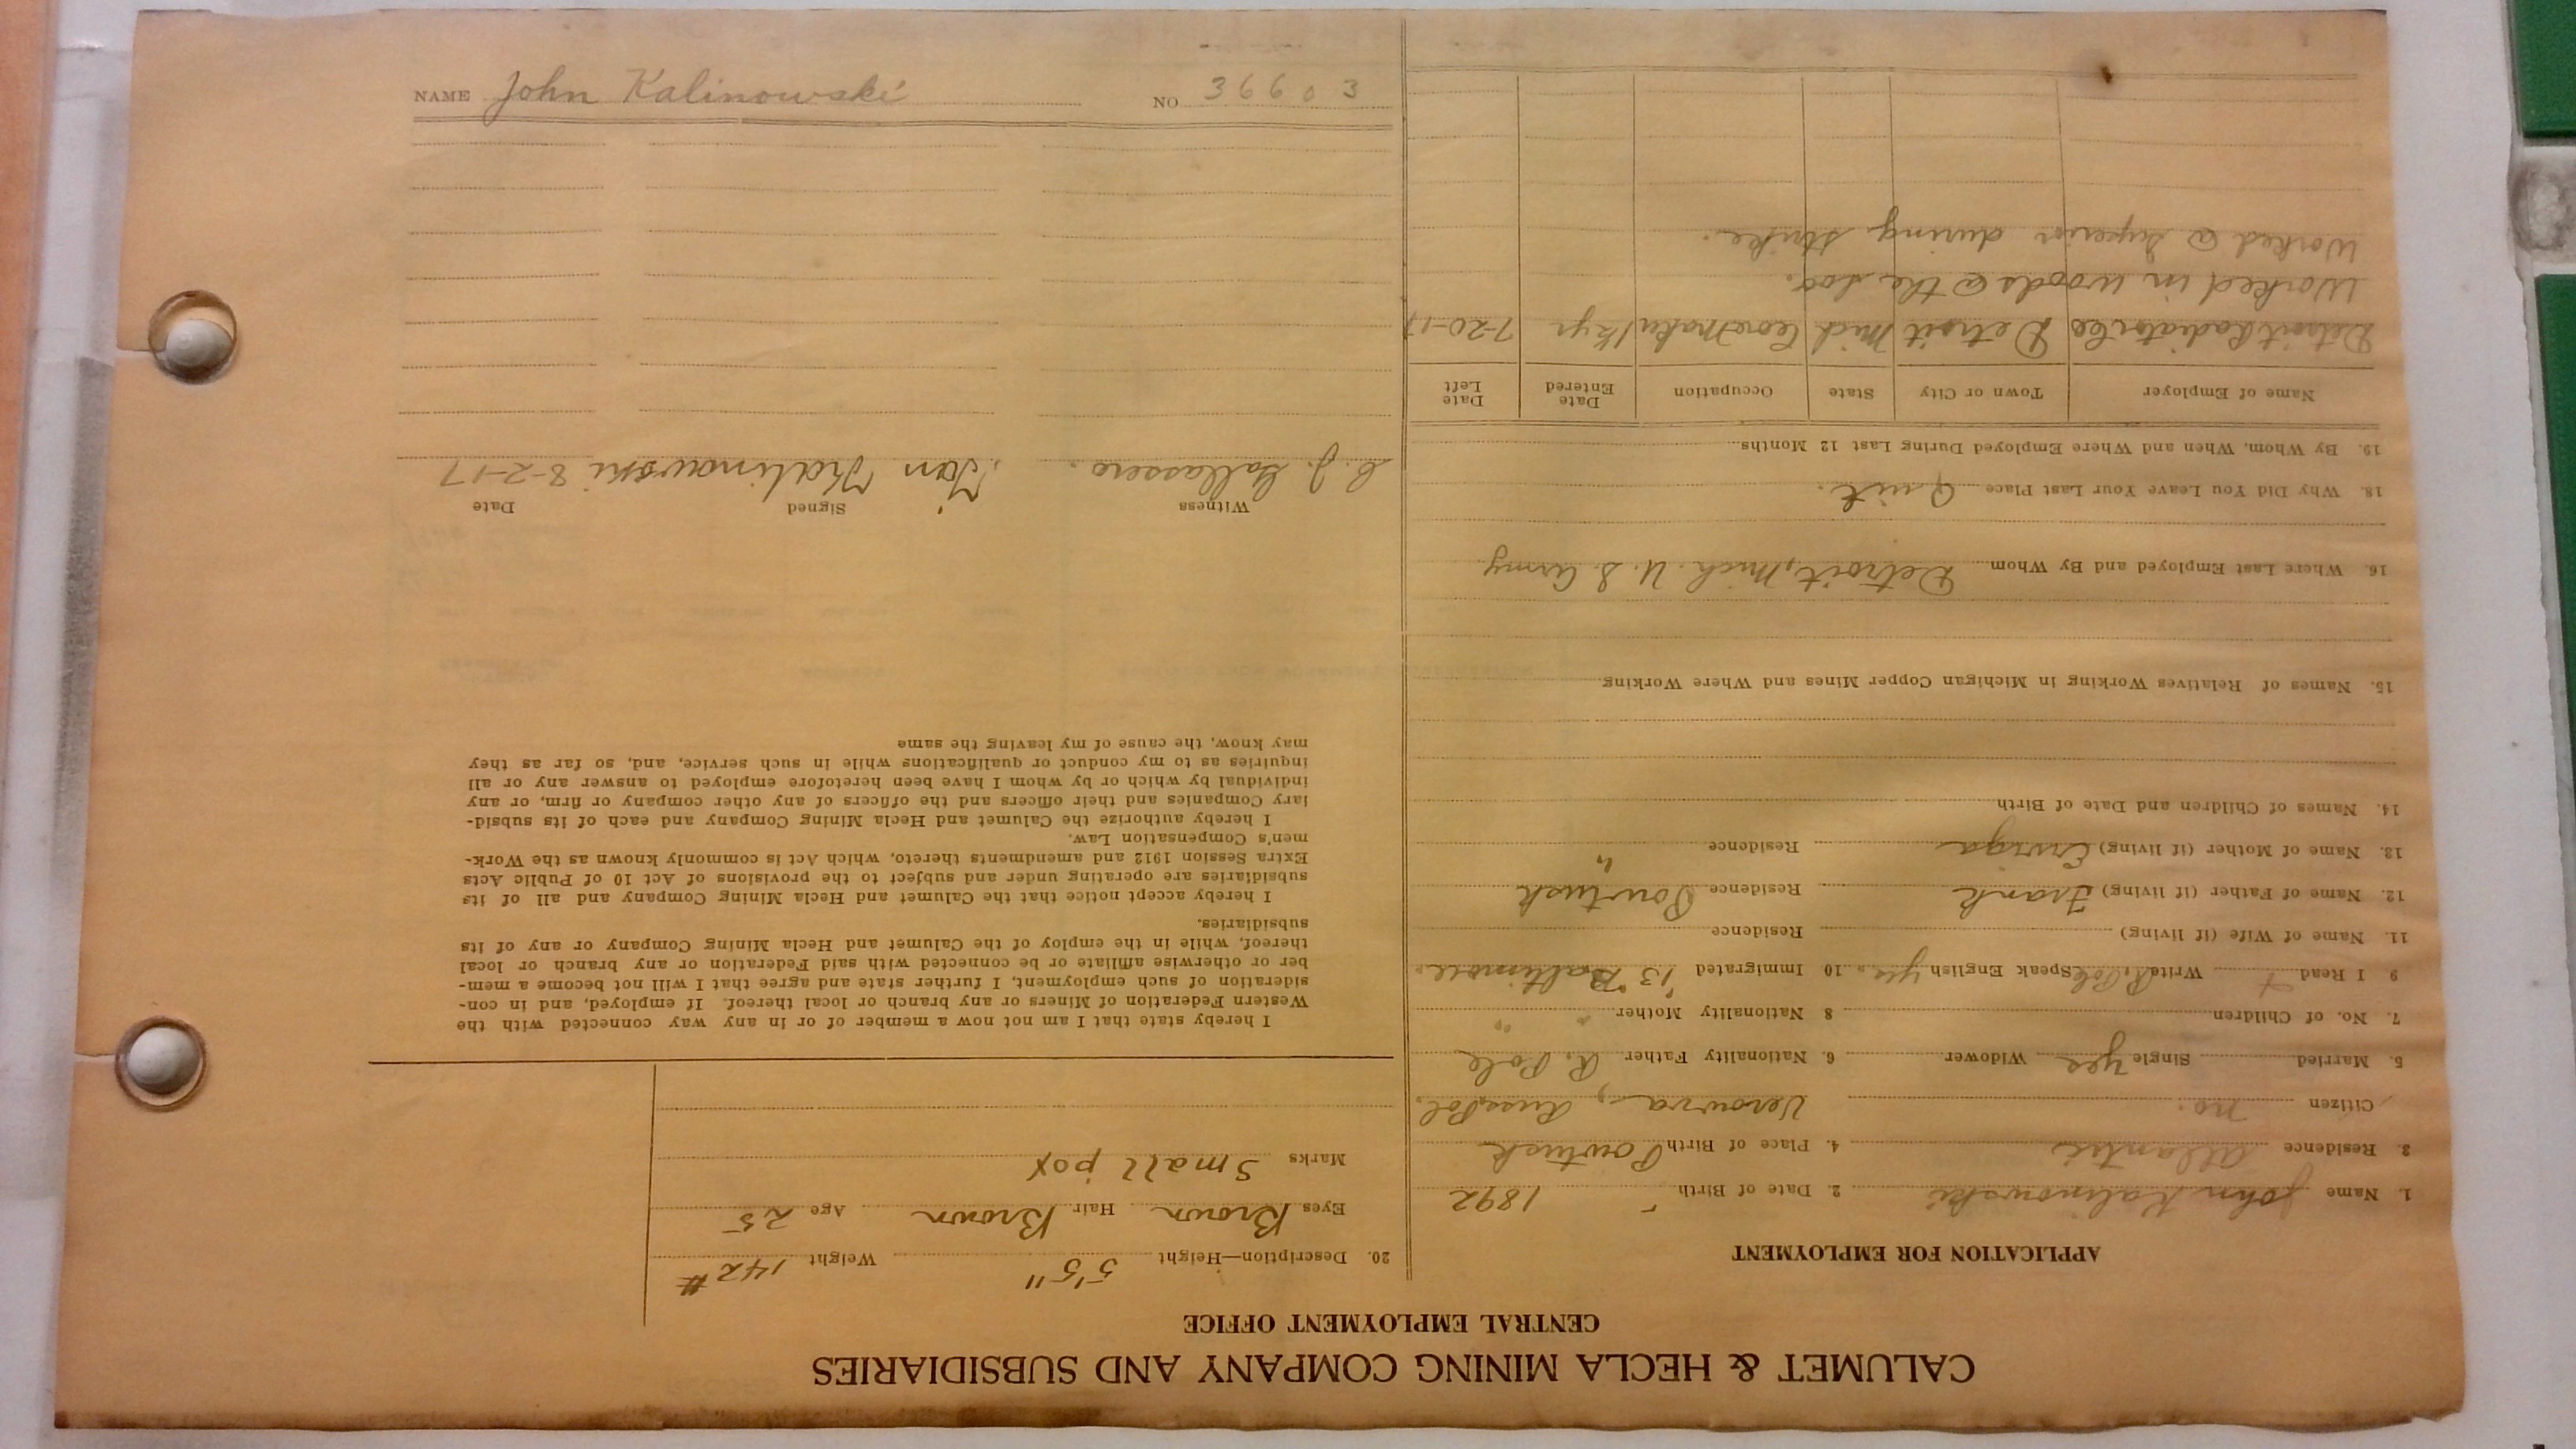 CALUMET & HECLA MINING COMPANY AND SUBSIDIARIES
CENTRAL EMPLOYMENT OFFICE
APPLICATION FOR EMPLOYMENT
1. Name John Kalinowski 2. Date of Birth 1892
3. Residence Atlantic 4. Place of Birth Powtusk
Citizen no. Russ. Pol.
5. Married Single yes Widower 6. Nationality Father R. Pole
7. No. of Children 8 Nationality Mother " "
9 I Read Write Speak English yes. 10 Immigrated '13 Baltimore.
11. Name of Wife (if living) Residence
12. Name of Father (if living) Frank Residence Powtusk
13. Name of Mother (if living) Residence "
14. Names of Children and Date of Birth
15. Names of Relatives Working in Michigan Copper Mines and Where Working
16. Where Last Employed and By Whom Detroit, Mich. U. S. Army
18. Why Did You Leave Your Last Place Quit.
19. By Whom, When and Where Employed During Last 12 Months
Name of Employer Town or City State Occupation Date Entered Date Left
Detroit Radiator Co Detroit Mich Core Maker 1½ yr 7-20-17
Worked in woods @ the Soo.
Worked @ Superior during strike.
20. Description—Height 5'5" Weight 142 #
Eyes Brown Hair Brown Age 25
Marks Small pox
I hereby state that I am not now a member of or in any way connected with the
Western Federation of Miners or any branch or local thereof. If employed, and in con-
sideration of such employment, I further state and agree that I will not become a mem-
ber or otherwise affiliate or be connected with said Federation or any branch or local
thereof, while in the employ of the Calumet and Hecla Mining Company or any of its
subsidiaries.
I hereby accept notice that the Calumet and Hecla Mining Company and all of its
subsidiaries are operating under and subject to the provisions of Act 10 of Public Acts
Extra Session 1912 and amendments thereto, which Act is commonly known as the Work-
men's Compensation Law.
I hereby authorize the Calumet and Hecla Mining Company and each of its subsid-
iary Companies and their officers and the officers of any other company or firm, or any
individual by which or by whom I have been heretofore employed to answer any or all
inquiries as to my conduct or qualifications while in such service, and, so far as they
may know, the cause of my leaving the same
Witness Signed Date
C. J. Gallassero. Jan Kalinowski 8-2-17
NAME John Kalinowski NO 36603